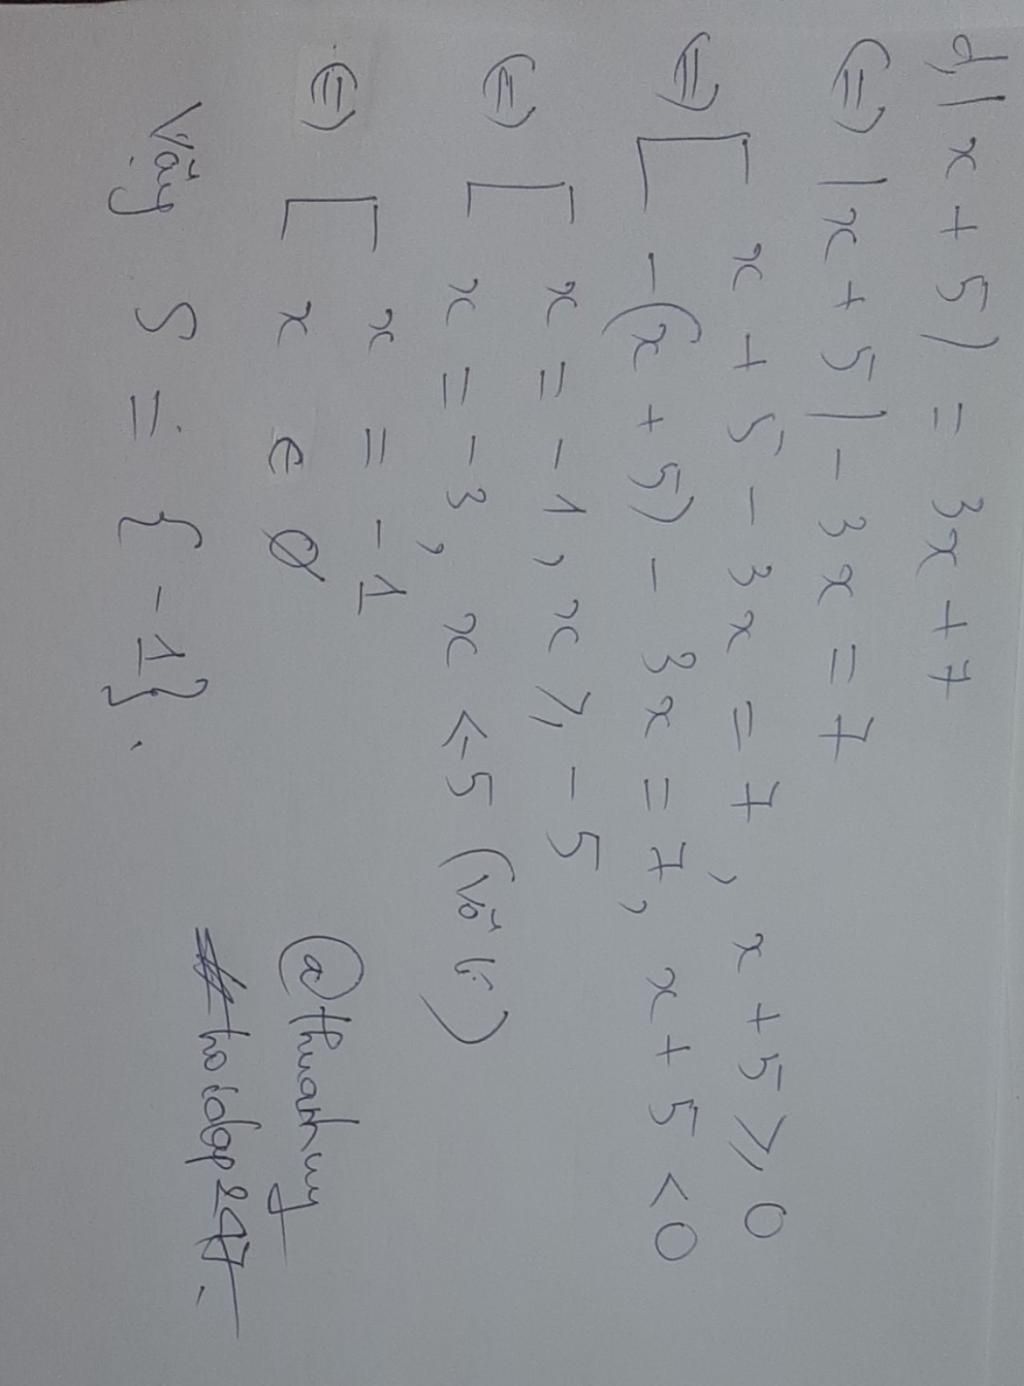 d, |x + 5| = 3x + 7
(=) |x + 5| - 3x = 7
(=) [ x + 5 - 3x = 7, x + 5 ≥ 0
-(x + 5) - 3x = 7, x + 5 < 0
(=) [ x = -1, x ≥ -5
x = -3, x < -5 (Vô lí)
(=) [ x = -1
x ∈ ∅
Vậy S = { -1}.
@thuanhuy
hoidap247.